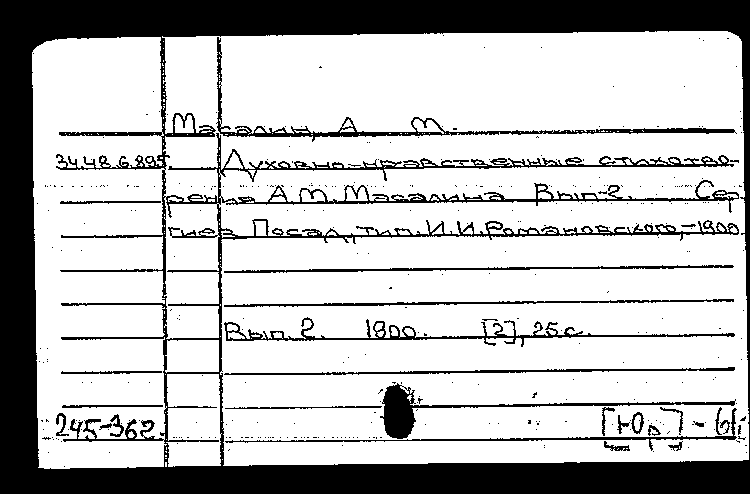 Масалин, А. М.
34.48.6.895. Духовно-нравственные стихотво-
рения А.М. Масалина Вып-2. Сер-
гиев Посад, тип. И.И. Романовского,-1900
Вып. 2. 1900. [2], 25 с.
245-362. [Юр]